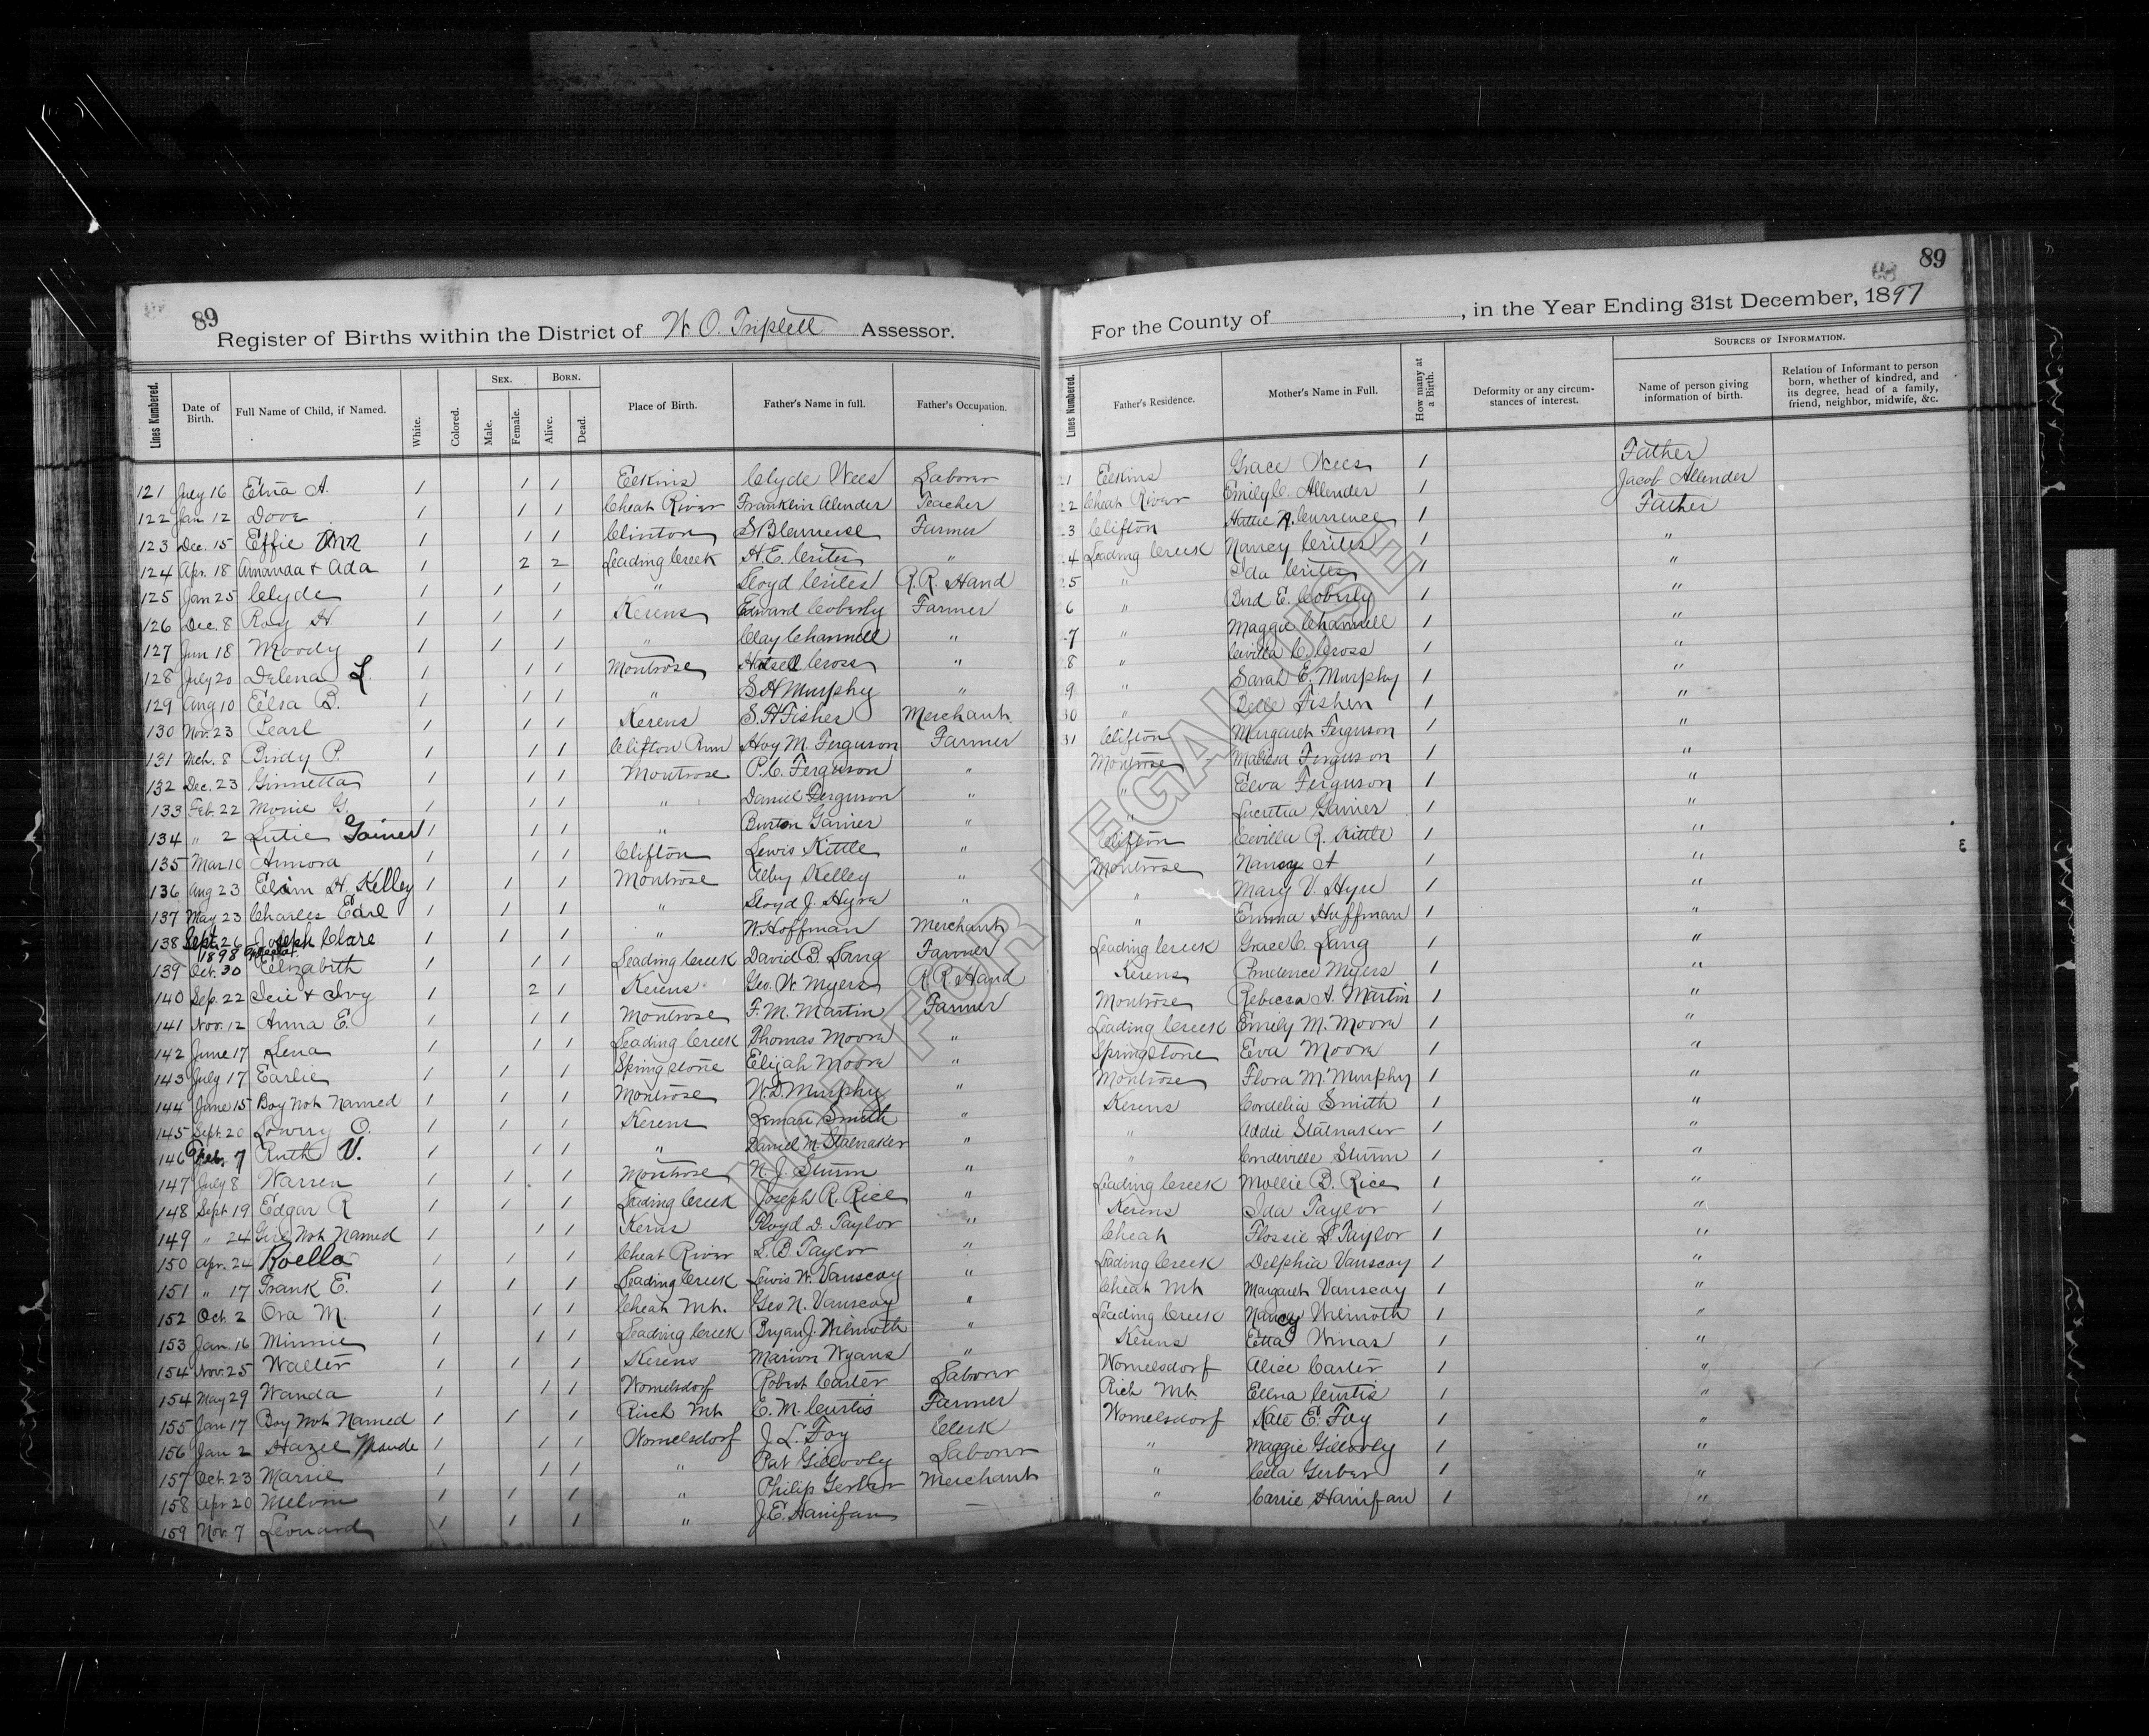 89
Register of Births within the District of W. O. Triplett Assessor.
Lines Numbered. Date of Birth. Full Name of Child, if Named. White. Colored. Sex. Male. Female. Born. Alive. Dead. Place of Birth. Father's Name in full. Father's Occupation.
121 July 16 Elna A. 1 1 1 Elkins Clyde Wees Laborer
122 Jan 12 Dove 1 1 1 Cheat River Franklin Alender Teacher
123 Dec. 15 Effie Ann 1 1 1 Clinton Farmer
124 Apr. 18 Amanda & Ada 1 2 2 Leading Creek H. E. Crites "
125 Jan 25 Clyde 1 1 1 " Lloyd Crites R.R. Hand
126 Dec. 8 Roy H 1 1 1 Kerens Edward Coberly Farmer
127 Jun 18 Moody 1 1 1 " Clay Channell "
128 July 20 Delena L. 1 1 1 Montrose Cross "
129 Aug 10 Elsa B. 1 1 1 " S H Murphy "
130 Nov. 23 Pearl 1 1 1 Kerens S. H Fisher Merchant
131 Mch. 8 Birdy P. 1 1 1 Clifton Run Hoy M. Ferguson Farmer
132 Dec. 23 Ginnetta 1 1 1 Montrose P. C. Ferguson "
133 Feb. 22 Monie G. 1 1 1 " Daniel Ferguson "
134 " 2 Lutie Gainer 1 1 1 " Burton Gainer "
135 Mar 10 Annora 1 1 1 Clifton Lewis Kittle "
136 Aug 23 Elam H. Kelley 1 1 1 Montrose Alby Kelley "
137 May 23 Charles Earl 1 1 1 " Lloyd J. Hyre "
138 Sept. 26 Joseph Clare 1 1 1 " W. Hoffman Merchant
1898
139 Oct. 30 Elizabeth 1 1 1 Leading Creek David B. Lang Farmer
140 Sep. 22 Icie & Ivy 1 2 1 Kerens Geo. W. Myers R. R. Hand
141 Nov. 12 Anna E. 1 1 1 Montrose F. M. Martin Farmer
142 June 17 Lena 1 1 1 Leading Creek Thomas Moore "
143 July 17 Earlie 1 1 1 Springstone Elijah Moore "
144 June 15 Boy Not Named 1 1 1 Montrose W. D. Murphy "
145 Sept. 20 Lowry O. 1 1 1 Kerens Leman Smith "
146 Feb. 7 Ruth V. 1 1 1 " Daniel M. Stalnaker "
147 July 8 Warren 1 1 1 Montrose N. J. Sturm "
148 Sept 19 Edgar R 1 1 1 Leading Creek Joseph R. Rice "
149 " 24 Girl Not Named 1 1 1 Kerns Floyd D. Taylor "
150 Apr. 24 Roella 1 1 1 Cheat River L. B. Taylor "
151 " 17 Frank E. 1 1 1 Leading Creek Lewis W. Vanscoy "
152 Oct. 2 Ora M. 1 1 1 Cheat Mt. Geo N. Vanscoy "
153 Jan. 16 Minnie 1 1 1 Leading Creek Bryan J. Wilmoth "
154 Nov. 25 Walter 1 1 1 Kerens Marion Wyans "
154 May 29 Wanda 1 1 1 Womelsdorf Robert Carter Laborer
155 Jan 17 Boy Not Named 1 1 1 Rich Mt E. M. Curtis Farmer
156 Jan 2 Hazel Maude 1 1 1 Womelsdorf J. L. Foy Clerk
157 Oct. 23 Marie 1 1 1 " Pat Gillooly Laborer
158 Apr 20 Melvin 1 1 1 " Philip Gerber Merchant
159 Nov. 7 Leonard 1 1 1 " J. E. Hanifan —
89
For the County of , in the Year Ending 31st December, 1897
Lines Numbered. Father's Residence. Mother's Name in Full. How many at a Birth. Deformity or any circumstances of interest. Sources of Information. Name of person giving information of birth. Relation of Informant to person born, whether of kindred, and its degree, head of a family, friend, neighbor, midwife, &c.
21 Elkins Grace Wees 1 Father
22 Cheat River Emily C. Allender 1 Jacob Allender
23 Clifton Hattie A. Currence 1 Father
24 Leading Creek Nancy Crites 1 "
25 " Ida Crites 1 "
26 " Bird E. Coberly 1 "
27 " Maggie Channell 1 "
28 " Civilla C. Cross 1 "
29 " Sarah E. Murphy 1 "
30 " Belle Fisher 1 "
31 Clifton Margaret Ferguson 1 "
Montrose Malissa Ferguson 1 "
" Elva Ferguson 1 "
" Lucretia Gainer 1 "
Clifton Civilla R. Kittle 1 "
Montrose Nancy A 1 "
" Mary V. Hyre 1 "
" Emma Huffman 1 "
Leading Creek Grace C. Lang 1 "
Kerens Prudence Myers 1 "
Montrose Rebicca A. Martin 1 "
Leading Creek Emily M. Moore 1 "
Springstone Eva Moore 1 "
Montrose Flora M. Murphy 1 "
Kerens Cordelia Smith 1 "
" Addie Stalnaker 1 "
" Cordeville Sturm 1 "
Leading Creek Mollie B. Rice 1 "
Kerens Ida Taylor 1 "
Cheat Flossie D. Taylor 1 "
Leading Creek Delphia Vanscoy 1 "
Cheat Mt Margaret Vanscoy 1 "
Leading Creek Nancy Wilmoth 1 "
Kerens Etta 1 "
Womelsdorf Alice Carter 1 "
Rich Mt Ellna Curtis 1 "
Womelsdorf Kate E. Foy 1 "
" Maggie Gillooly 1 "
" Celia Gerber 1 "
" Carrie Hanifan 1 "
NOT FOR LEGAL USE